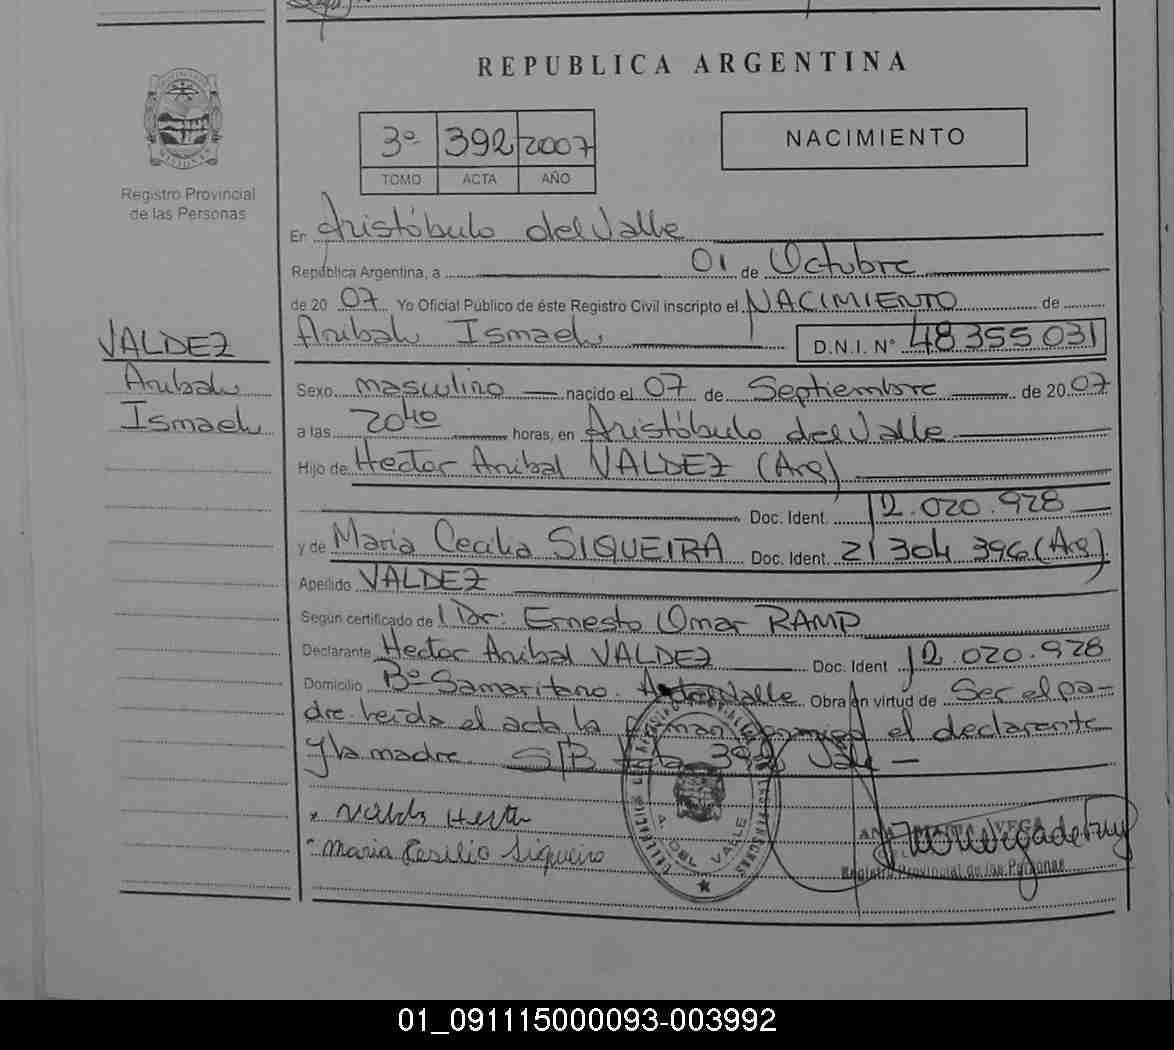 REPUBLICA ARGENTINA
3º 392 2007
TOMO ACTA AÑO
NACIMIENTO
Registro Provincial
de las Personas
En Aristóbulo del Valle
República Argentina, a 01 de Octubre
de 2007 Yo Oficial Público de éste Registro Civil inscripto el NACIMIENTO de
Anibal Ismael D.N.I. N° 48355031
VALDEZ
Anibal
Ismael
Sexo masculino nacido el 07 de Septiembre de 2007
a las 2040 horas, en Aristóbulo del Valle
Hijo de Hector Anibal VALDEZ (Arg)
Doc. Ident. 12.020.928
y de Maria Cecilia SIQUEIRA Doc. Ident. 21304396 (Arg)
Apellido VALDEZ
Según certificado de Dr: Ernesto Omar RAMP
Declarante Hector Anibal VALDEZ Doc. Ident 12.020.928
Domicilio Bº Samaritano. A del Valle Obra en virtud de Ser el pa-
dre leida el acta la firman el declarante
y la madre. S/B Vale —
Valdz Hector
Maria Cesilio Siqueiro
VALLE
ANA VEGA
Registro Provincial de las Personas
01_091115000093-003992